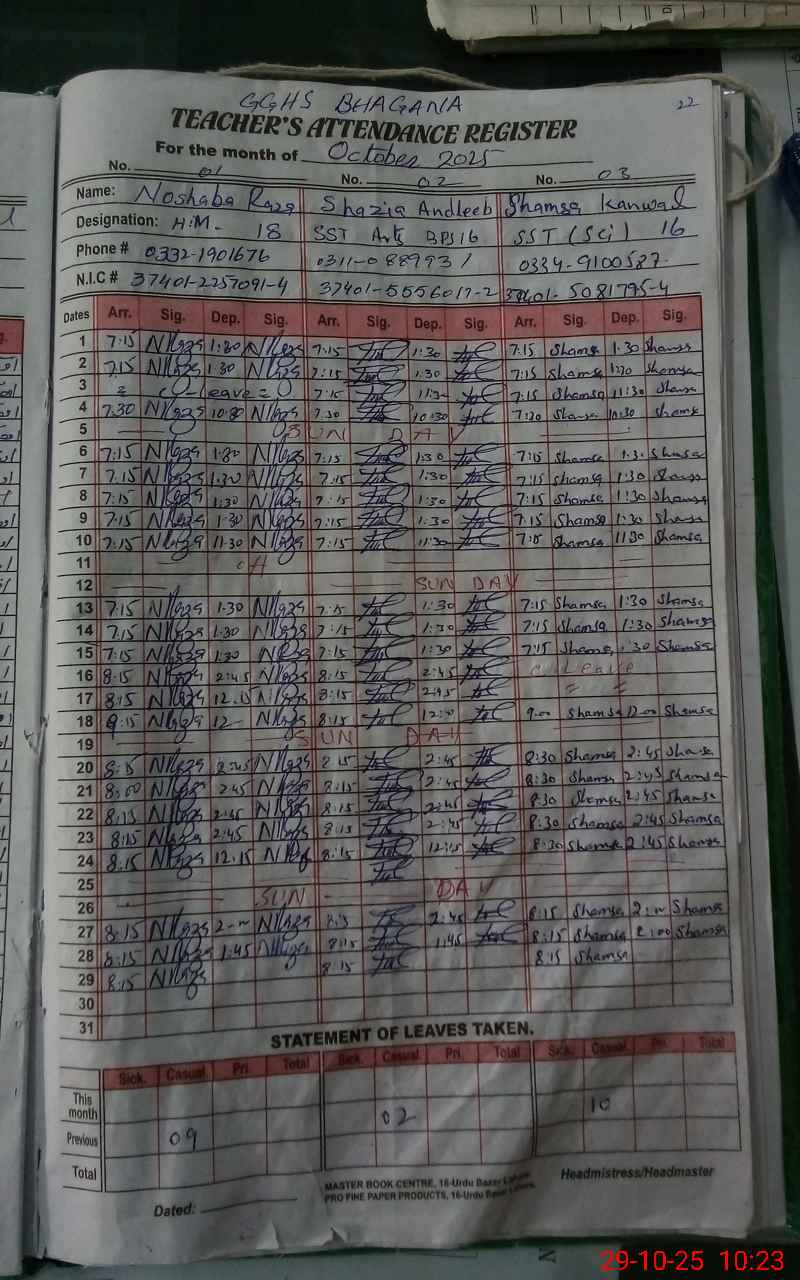 GGHS BHAGANA 22
TEACHER'S ATTENDANCE REGISTER
For the month of October 2025
No. 01 No. 02 No. 03
Name: Noshaba Raza Shazia Andleeb Shamsa Kanwal
Designation: H.M- 18 SST Arts BPS16 SST (Sci) 16
Phone # 0332-1901676 0311-0889931 0334-9100587
N.I.C # 37401-2257091-4 37401-5556017-2 37401-5081795-4
Dates Arr. Sig. Dep. Sig. Arr. Sig. Dep. Sig. Arr. Sig. Dep. Sig.
1 7:15 1:30 7:15 1:30 7:15 Shamsa 1:30 Shamsa
2 7.15 1.30 7:15 1:30 7:15 Shamsa 1:30 Shamsa
3 leave 7:15 11:30 7:15 Shamsa 11:30 Shamsa
4 7.30 10:30 7.30 10:30 7:30 Shamsa 10:30 Shamsa
5 SUN DAY
6 7:15 1:30 7:15 1:30 7:15 Shamsa 1:30 Shamsa
7 7.15 1.30 7:15 1:30 7:15 Shamsa 1:30 Shamsa
8 7:15 1:30 7:15 1:30 7:15 Shamsa 1:30 Shamsa
9 7:15 1.30 7:15 1:30 7:15 Shamsa 1:30 Shamsa
10 7:15 11.30 7:15 11:30 7:15 Shamsa 11:30 Shamsa
11
12 SUN DAY
13 7:15 1.30 7:15 1:30 7:15 Shamsa 1:30 Shamsa
14 7.15 1.30 7:15 1:30 7:15 Shamsa 1:30 Shamsa
15 7:15 1:30 7:15 1:30 7:15 Shamsa 1:30 Shamsa
16 8.15 2:45 8:15 2:45 Leave
17 8:15 12.15 8:15 2:45
18 9:15 12 8:15 12:00 9.00 Shamsa 12.00 Shamsa
19 SUN DAY
20 8:15 2:45 8:15 2:45 8:30 Shamsa 2:45 Shamsa
21 8:00 2.45 8:15 2:45 8:30 Shamsa 2:45 Shamsa
22 8:15 2:45 8:15 2:45 8:30 Shamsa 2:45 Shamsa
23 8:15 2:45 8:15 2:45 8:30 Shamsa 2:45 Shamsa
24 8.15 12.15 8:15 12:15 8:30 Shamsa 2:45 Shamsa
25
26 SUN DAY
27 8:15 2:45 8:15 Shamsa Shamsa
28 8:15 1:45 8:15 1:45 8:15 Shamsa 2:00 Shamsa
29 8:15 8:15 8:15 Shamsa
30
31
STATEMENT OF LEAVES TAKEN.
Sick. Casual Pri. Total Sick. Casual Pri. Total Sick. Casual Pri. Total
This month
Previous 09 02 10
Total
Dated:
MASTER BOOK CENTRE, 16-Urdu Bazar Lahore
PRO FINE PAPER PRODUCTS, 16-Urdu Bazar Lahore.
Headmistress/Headmaster
29-10-25 10:23